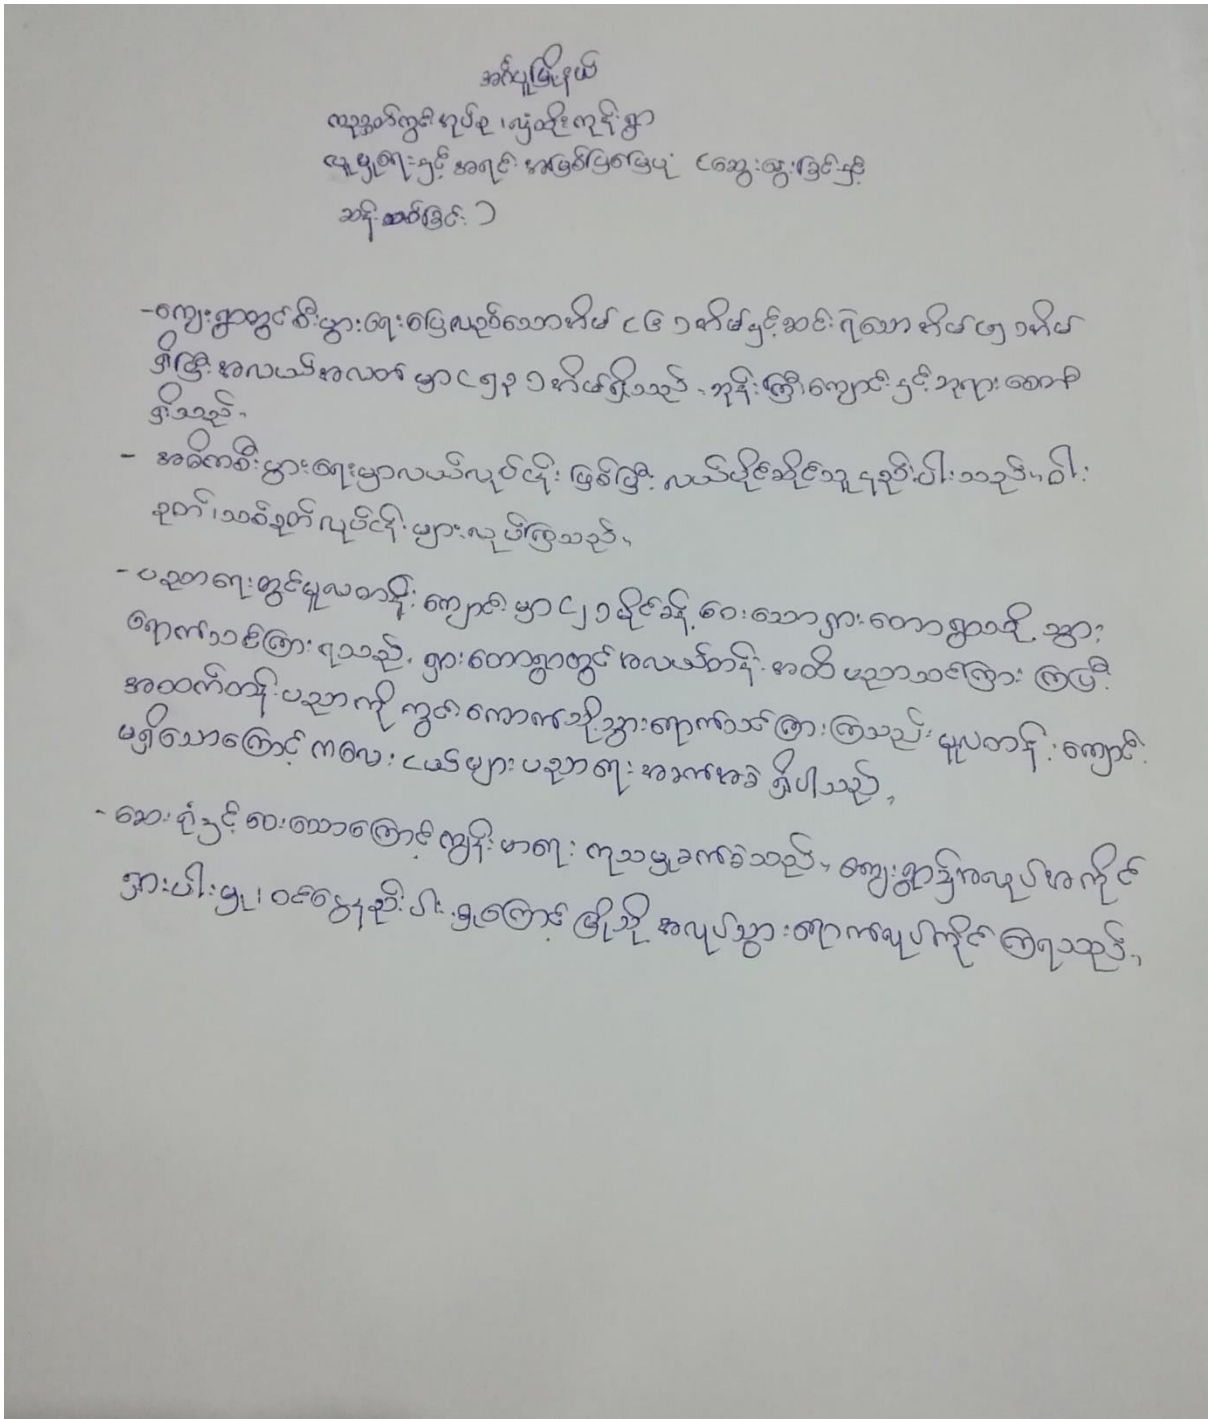 အင်္ဂပူမြို့နယ်
ကညွှတ်ကွင်းအုပ်စု၊ လှံထိုးကုန်းရွာ
လူမှုရေးနှင့် အရင်း အမြစ်ပြမြေပုံ (ဆွေးနွေးခြင်းနှင့်
ဆန်းစစ်ခြင်း)
-ကျေးရွာတွင်စီးပွားရေးပြေလည်သောအိမ် (၆) အိမ်နှင့်ဆင်းရဲသောအိမ် အိမ်
ရှိပြီး အလယ်အလတ် မှာ (၅၃) အိမ်ရှိသည်။ ဘုန်းကြီးကျောင်းနှင့်ဘုရား စေတီ
ရှိသည်။
- အဓိကစီးပွားရေးမှာလယ်လုပ်ငန်း ဖြစ်ပြီး လယ်ပိုင်ဆိုင်သူ နည်းပါးသည်။ ဝါး
ခုတ်၊ သစ်ခုတ်လုပ်ငန်းများလုပ်ကြသည်။
- ပညာရေးတွင်မူလတန်းကျောင်းမှာ (၂) မိုင်ခန့် ဝေးသောရှားတောရွာသို့ သွား
ရောက်သင်ကြားရသည်။ ရှားတောရွာတွင်အလယ်တန်းအထိ ပညာသင်ကြား ကြပြီး
အထက်တန်းပညာကို ကွင်းကောက်သို့သွားရောက်သင်ကြားကြသည်။ မူလတန်းကျောင်း
မရှိသောကြောင့် ကလေးငယ်များပညာရေး အခက်အခဲ ရှိပါသည်။
-ဆေးရုံနှင့်ဝေးသောကြောင့်ကျန်းမာရေး ကုသမှုခက်ခဲသည်။ ကျေးရွာ၌အလုပ်အကိုင်
ရှားပါးမှု၊ ဝင်ငွေနည်းပါးမှုကြောင့် မြို့သို့ အလုပ်သွားရောက်လုပ်ကိုင်ကြရသည်။